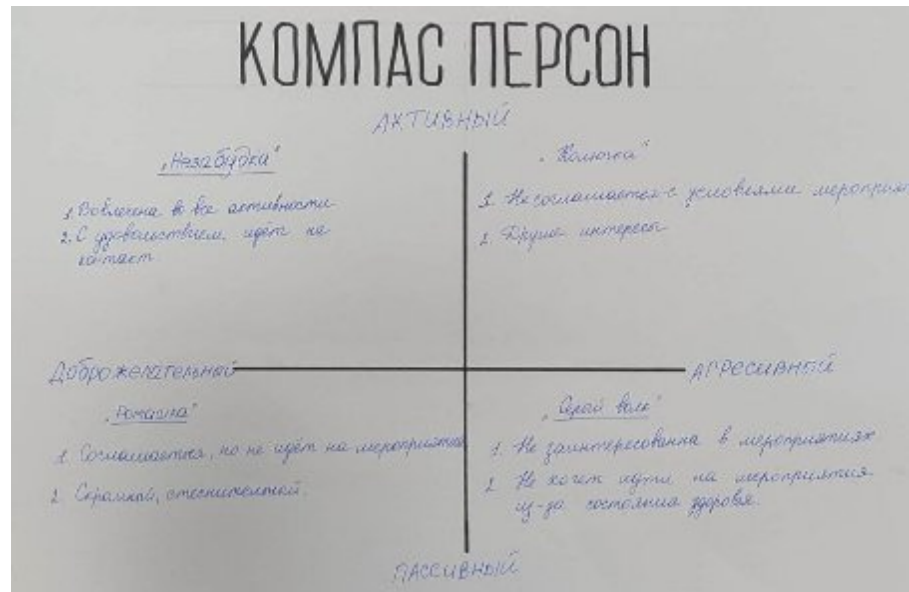 КОМПАС ПЕРСОН
АКТИВНЫЙ
„Незабудка"
1. Вовлечена во все активности
2. С удовольствием идёт на
контакт
„Колючка"
1. Не соглашается с условиями мероприя
2. Другие интересы
ДОБРОЖЕЛАТЕЛЬНЫЙ
АГРЕСИВНЫЙ
„Ромашка"
1. Соглашается, но не идёт на мероприятие
2. Скромный, стеснительный.
„Серый волк"
1. Не заинтересованна в мероприятиях
2. Не хочет идти на мероприятия
из-за состояния здоровья.
ПАССИВНЫЙ